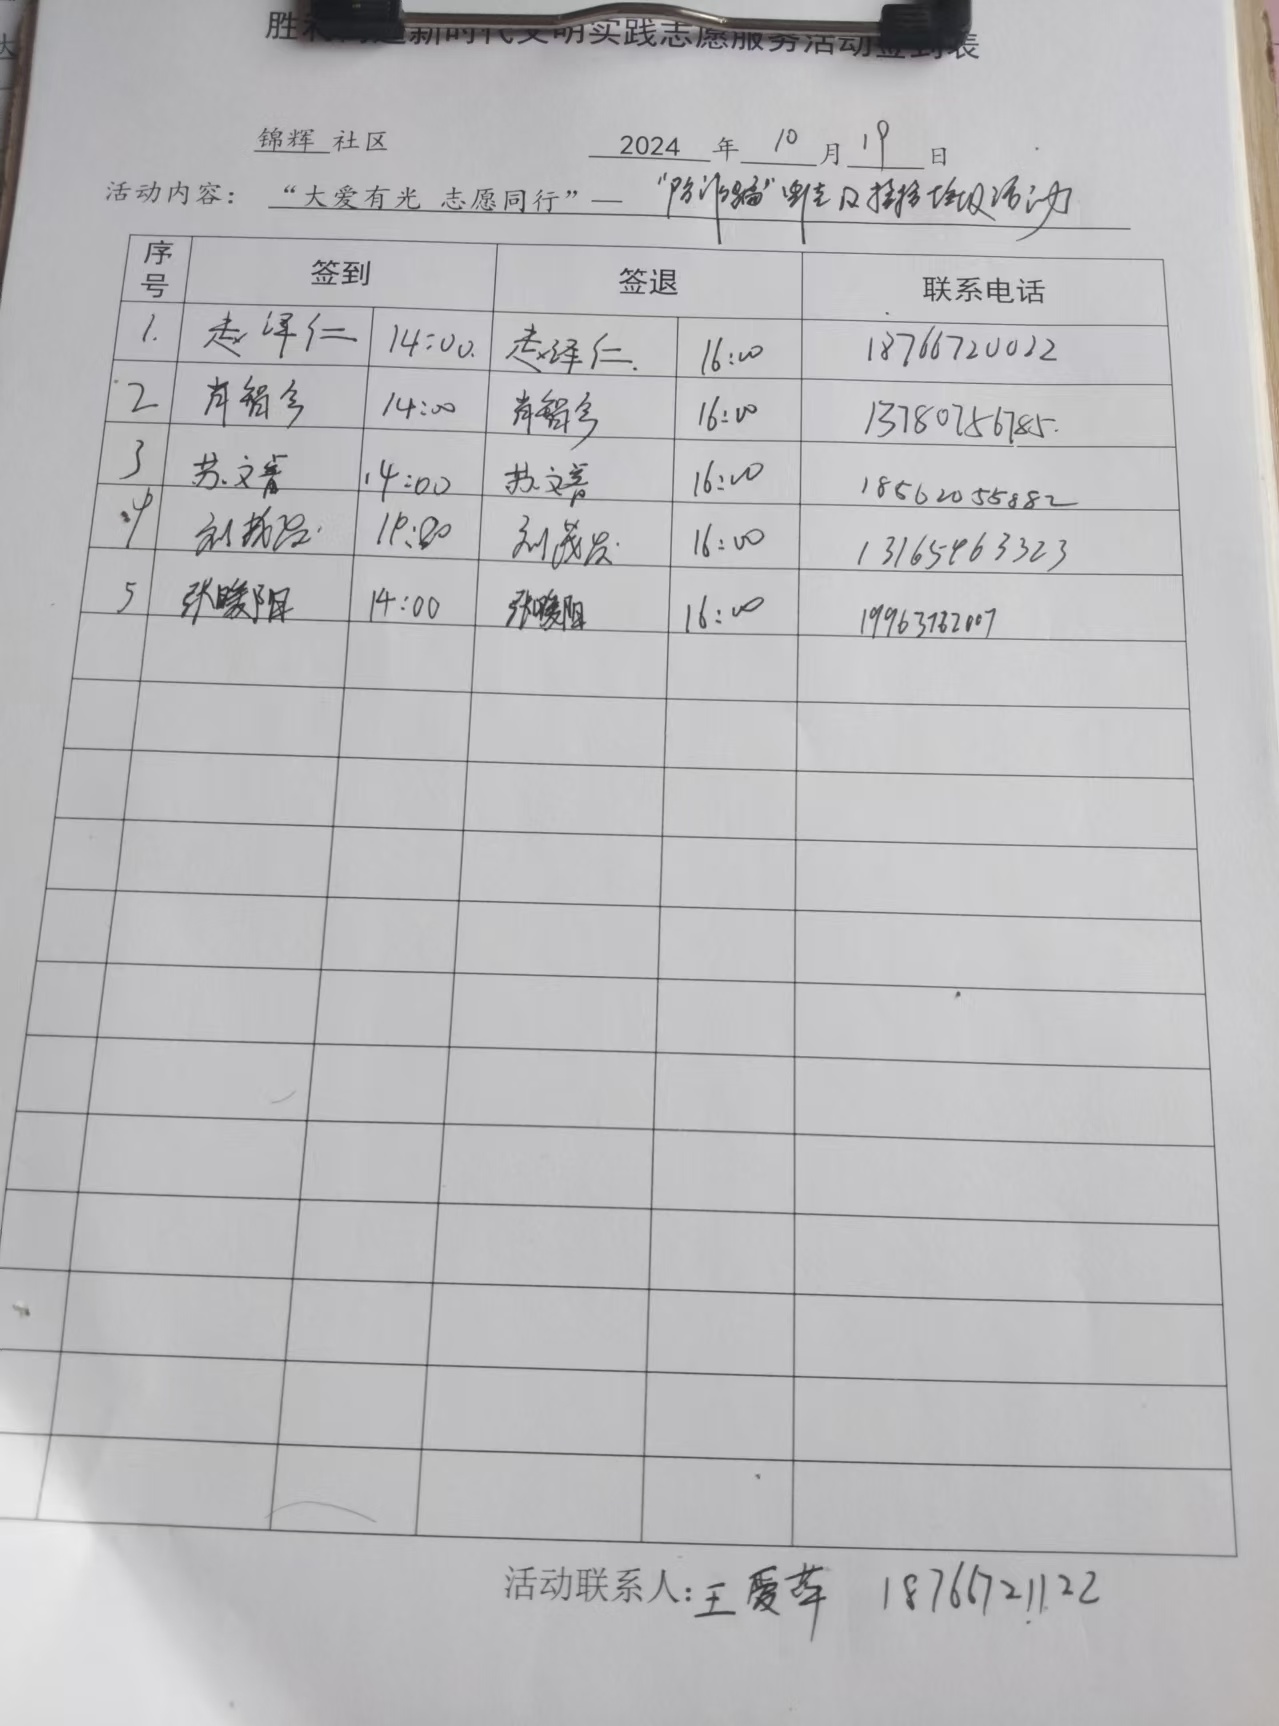 新时代文明实践志愿服务活动签到表
锦辉 社区 2024 年 10 月 19 日
活动内容： “大爱有光 志愿同行”— “防诈骗” 及 垃圾活动
序号 签到 签退 联系电话
1. 赵泽仁 14:00. 赵泽仁. 16:00 18766720022
2 肖智今 14:00 肖智今 16:00 13780756785.
3 苏文 14:00 苏文 16:00 18562055882
4 刘茂 刘茂 16:00 13165963323
5 张暖阳 14:00 张暖阳 16:00 19963762007
活动联系人: 王爱萍 18766721122